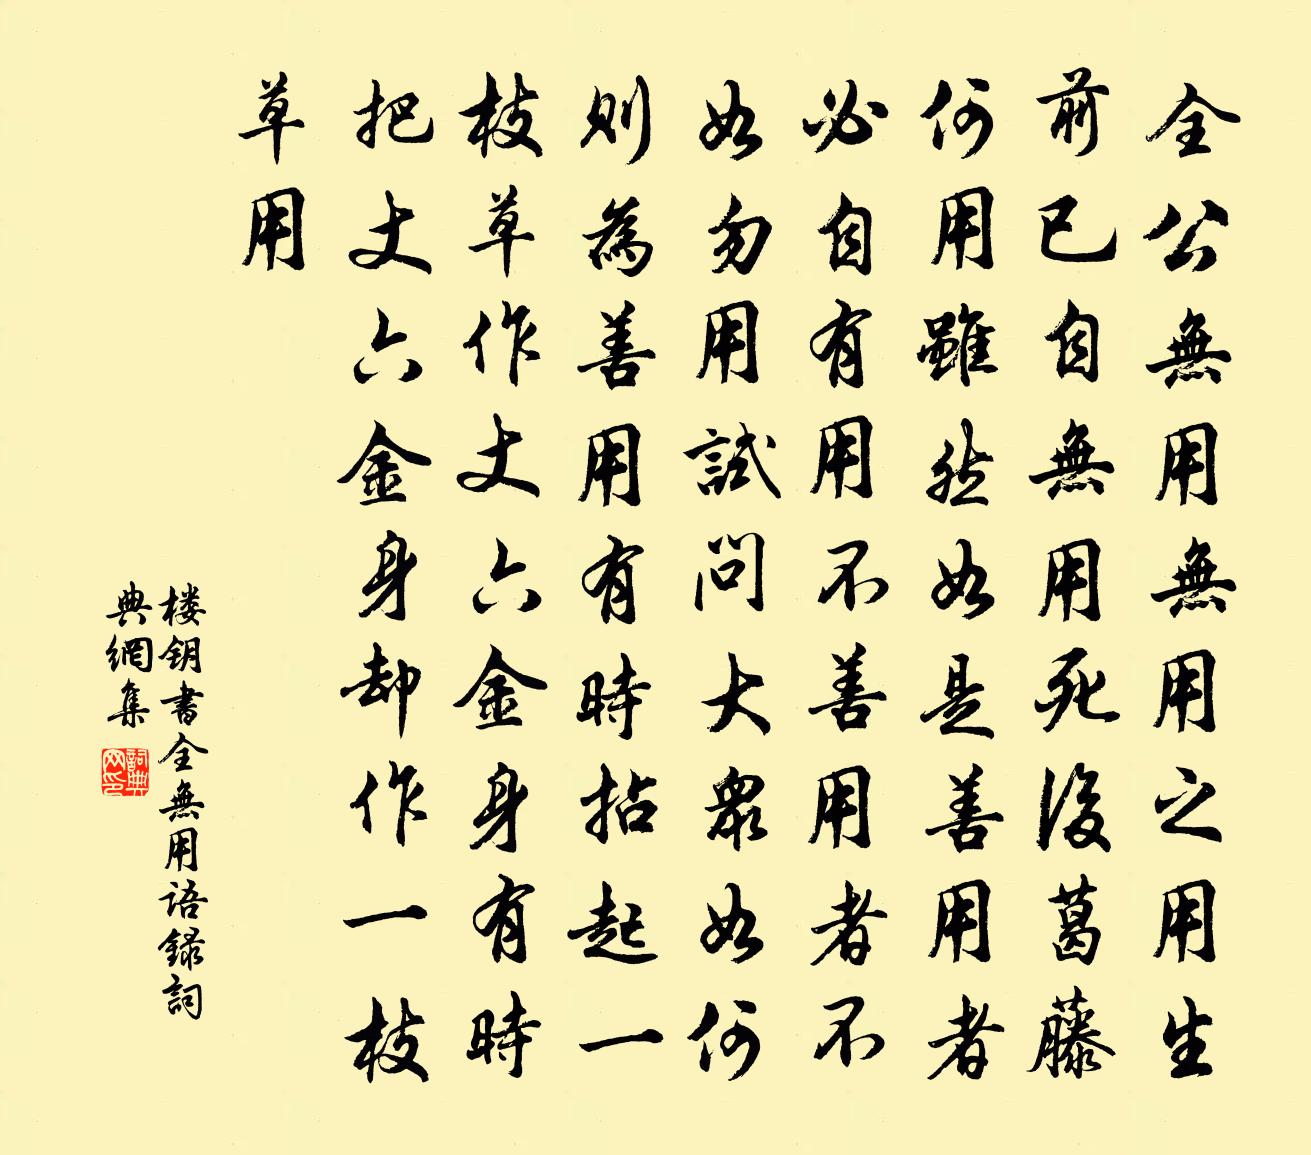 全公無用無用之用生
前已自無用死後葛藤
何用雖然如是善用者
必自有用不善用者不
如勿用試問大眾如何
則為善用有時拈起一
枝草作丈六金身有時
把丈六金身却作一枝
草用
楼钥書全無用语録詞
典網集
詞典
网印